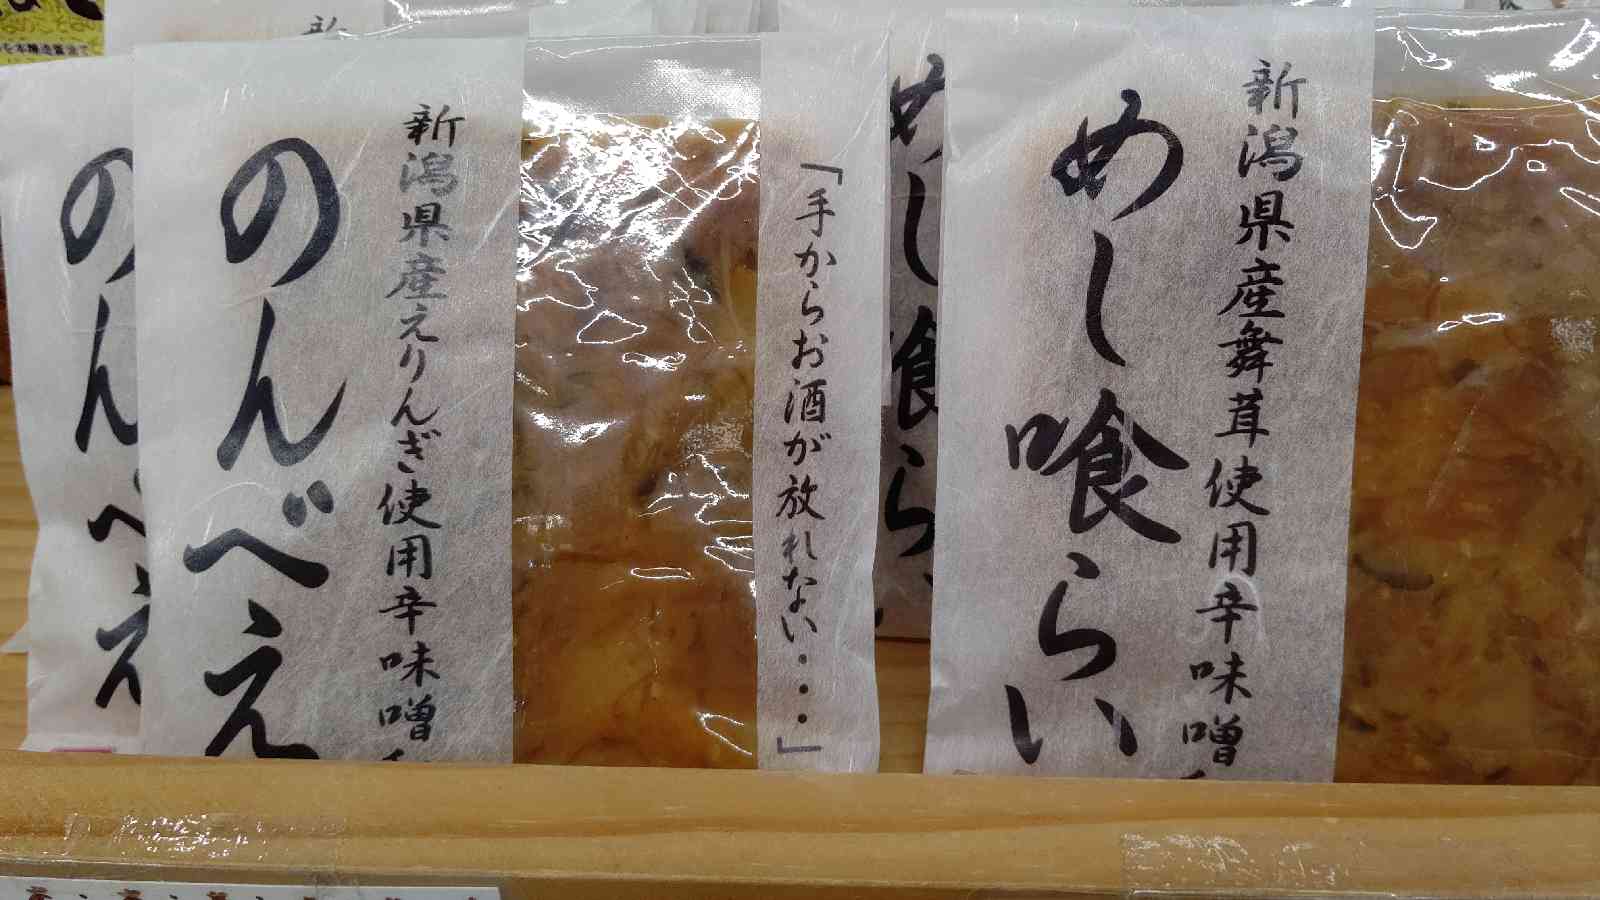 めし喰らい
新潟県産舞茸使用辛味噌
「手からお酒が放れない・・・」
新潟県産えりんぎ使用辛味噌
のんべえ
めし喰ら
のんべえ
新